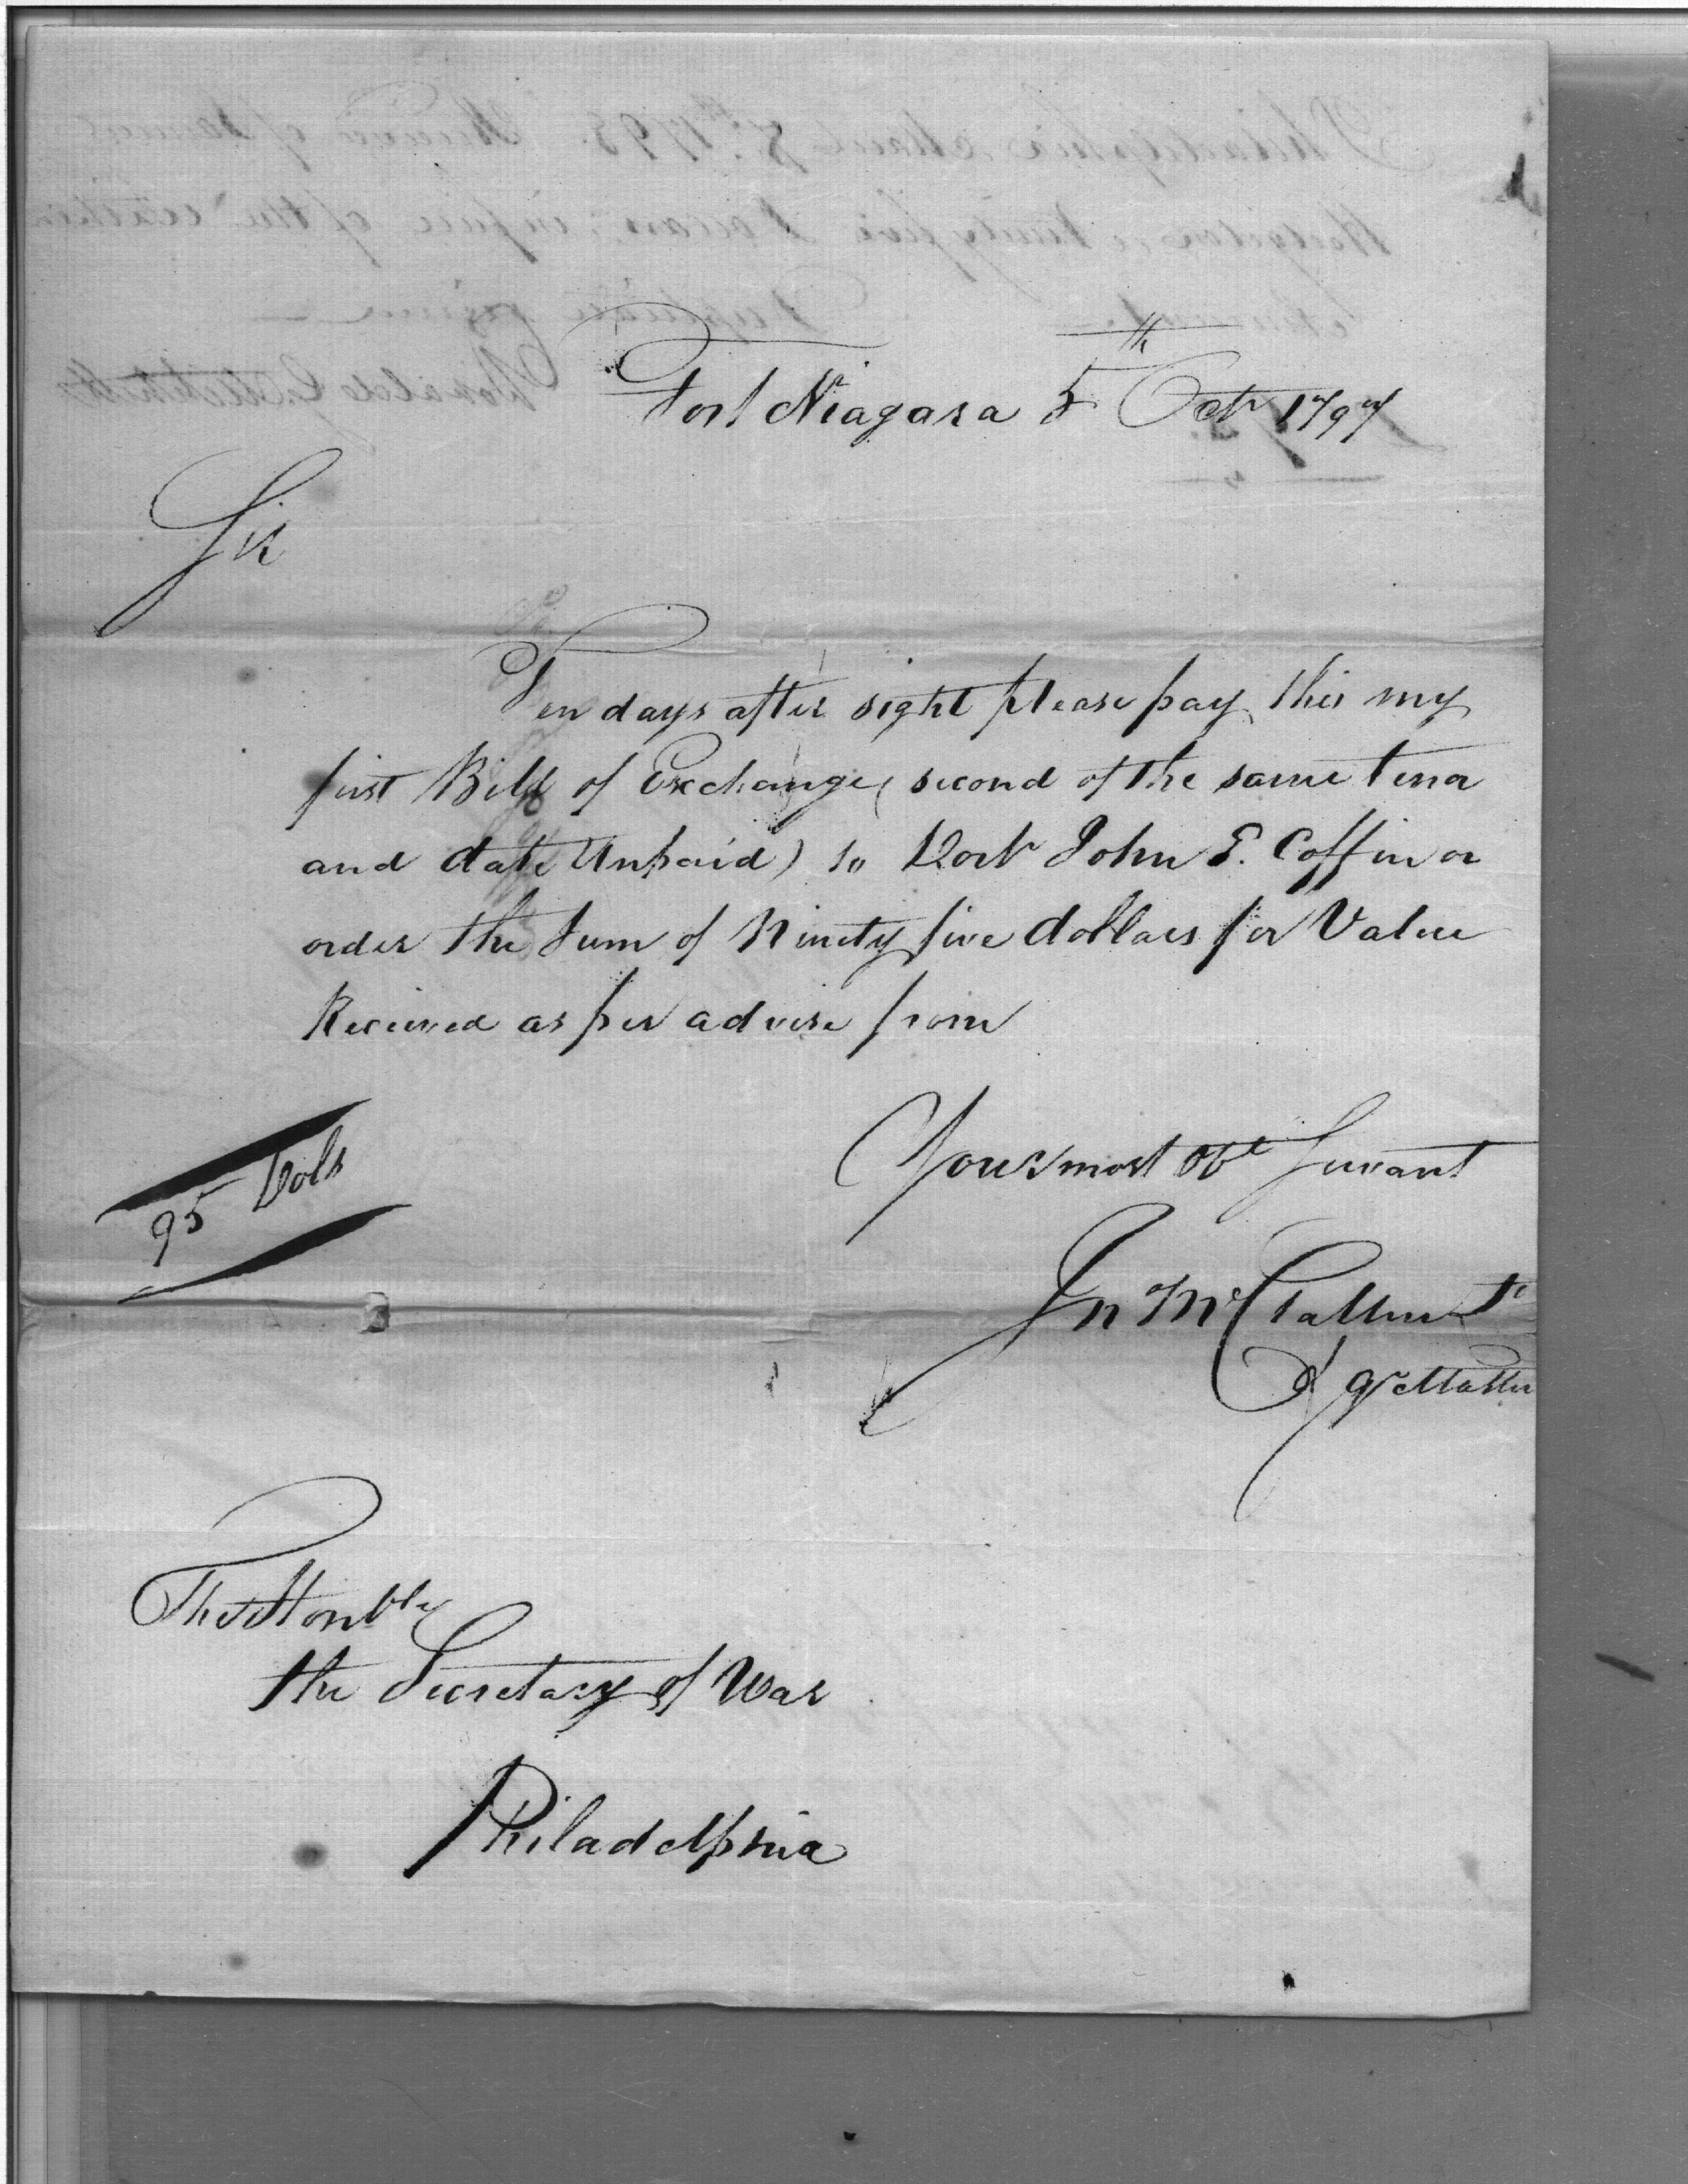 Fort Niagara 5th Octr 1797
Sir
Ten days after sight please pay this my
first Bill of Exchange (second of the same tenor
and date Unpaid) to Doctr John E. Coffin or
order the Sum of Ninety five dollars for Value
Received as per advise from
Your most Obt Servant
95 Dols
Jn McClallen
Qr Master
The Honble
the Secretary of War
Philadelphia